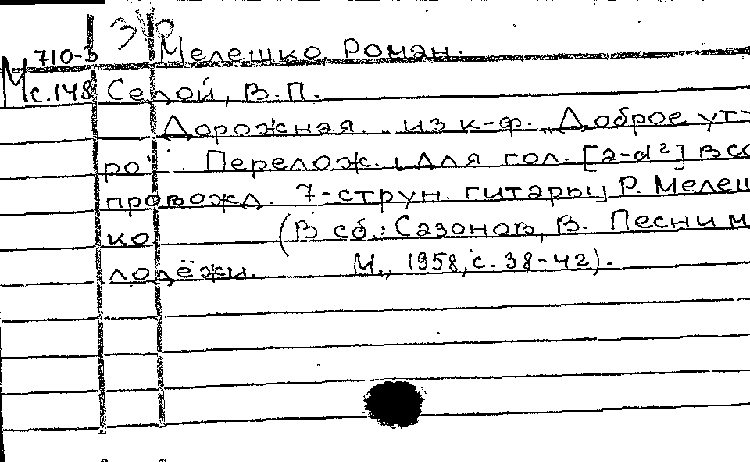 710-3 Мелешко Роман.
М с.148 Седой, В.П.
Дорожная. из к-ф. „Доброе ут-
ро". Перелож. для гол. [a-d²] в со
провожд. 7-струн. гитары Р. Мелеш
ко (В сб.: Сазонов, В. Песни м
лодёжи. М., 1958, с. 38-42).